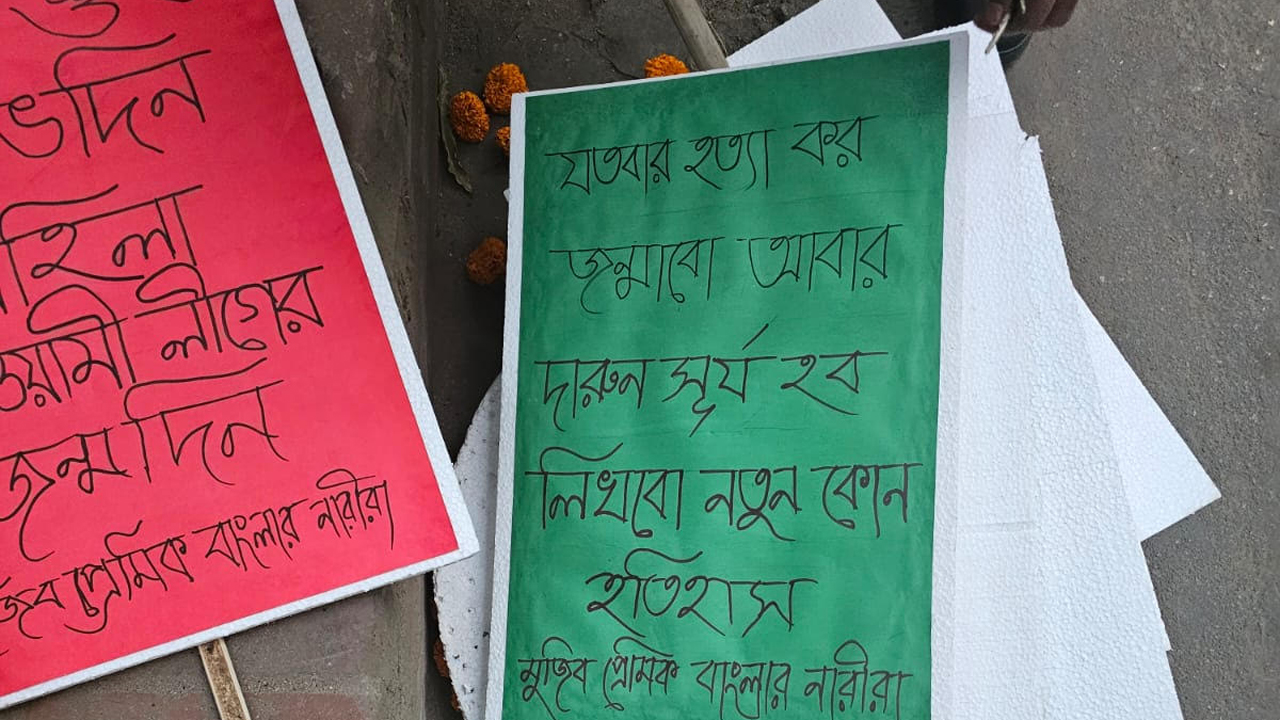 ভদিন
হিলা
ওয়ামী লীগের
জন্মদিন
প্রেমিক বাংলার নারীরা
যতবার হত্যা কর
জন্মাবো আবার
দারুন সূর্য হব
লিখবো নতুন কোন
ইতিহাস
মুজিব প্রেমিক বাংলার নারীরা